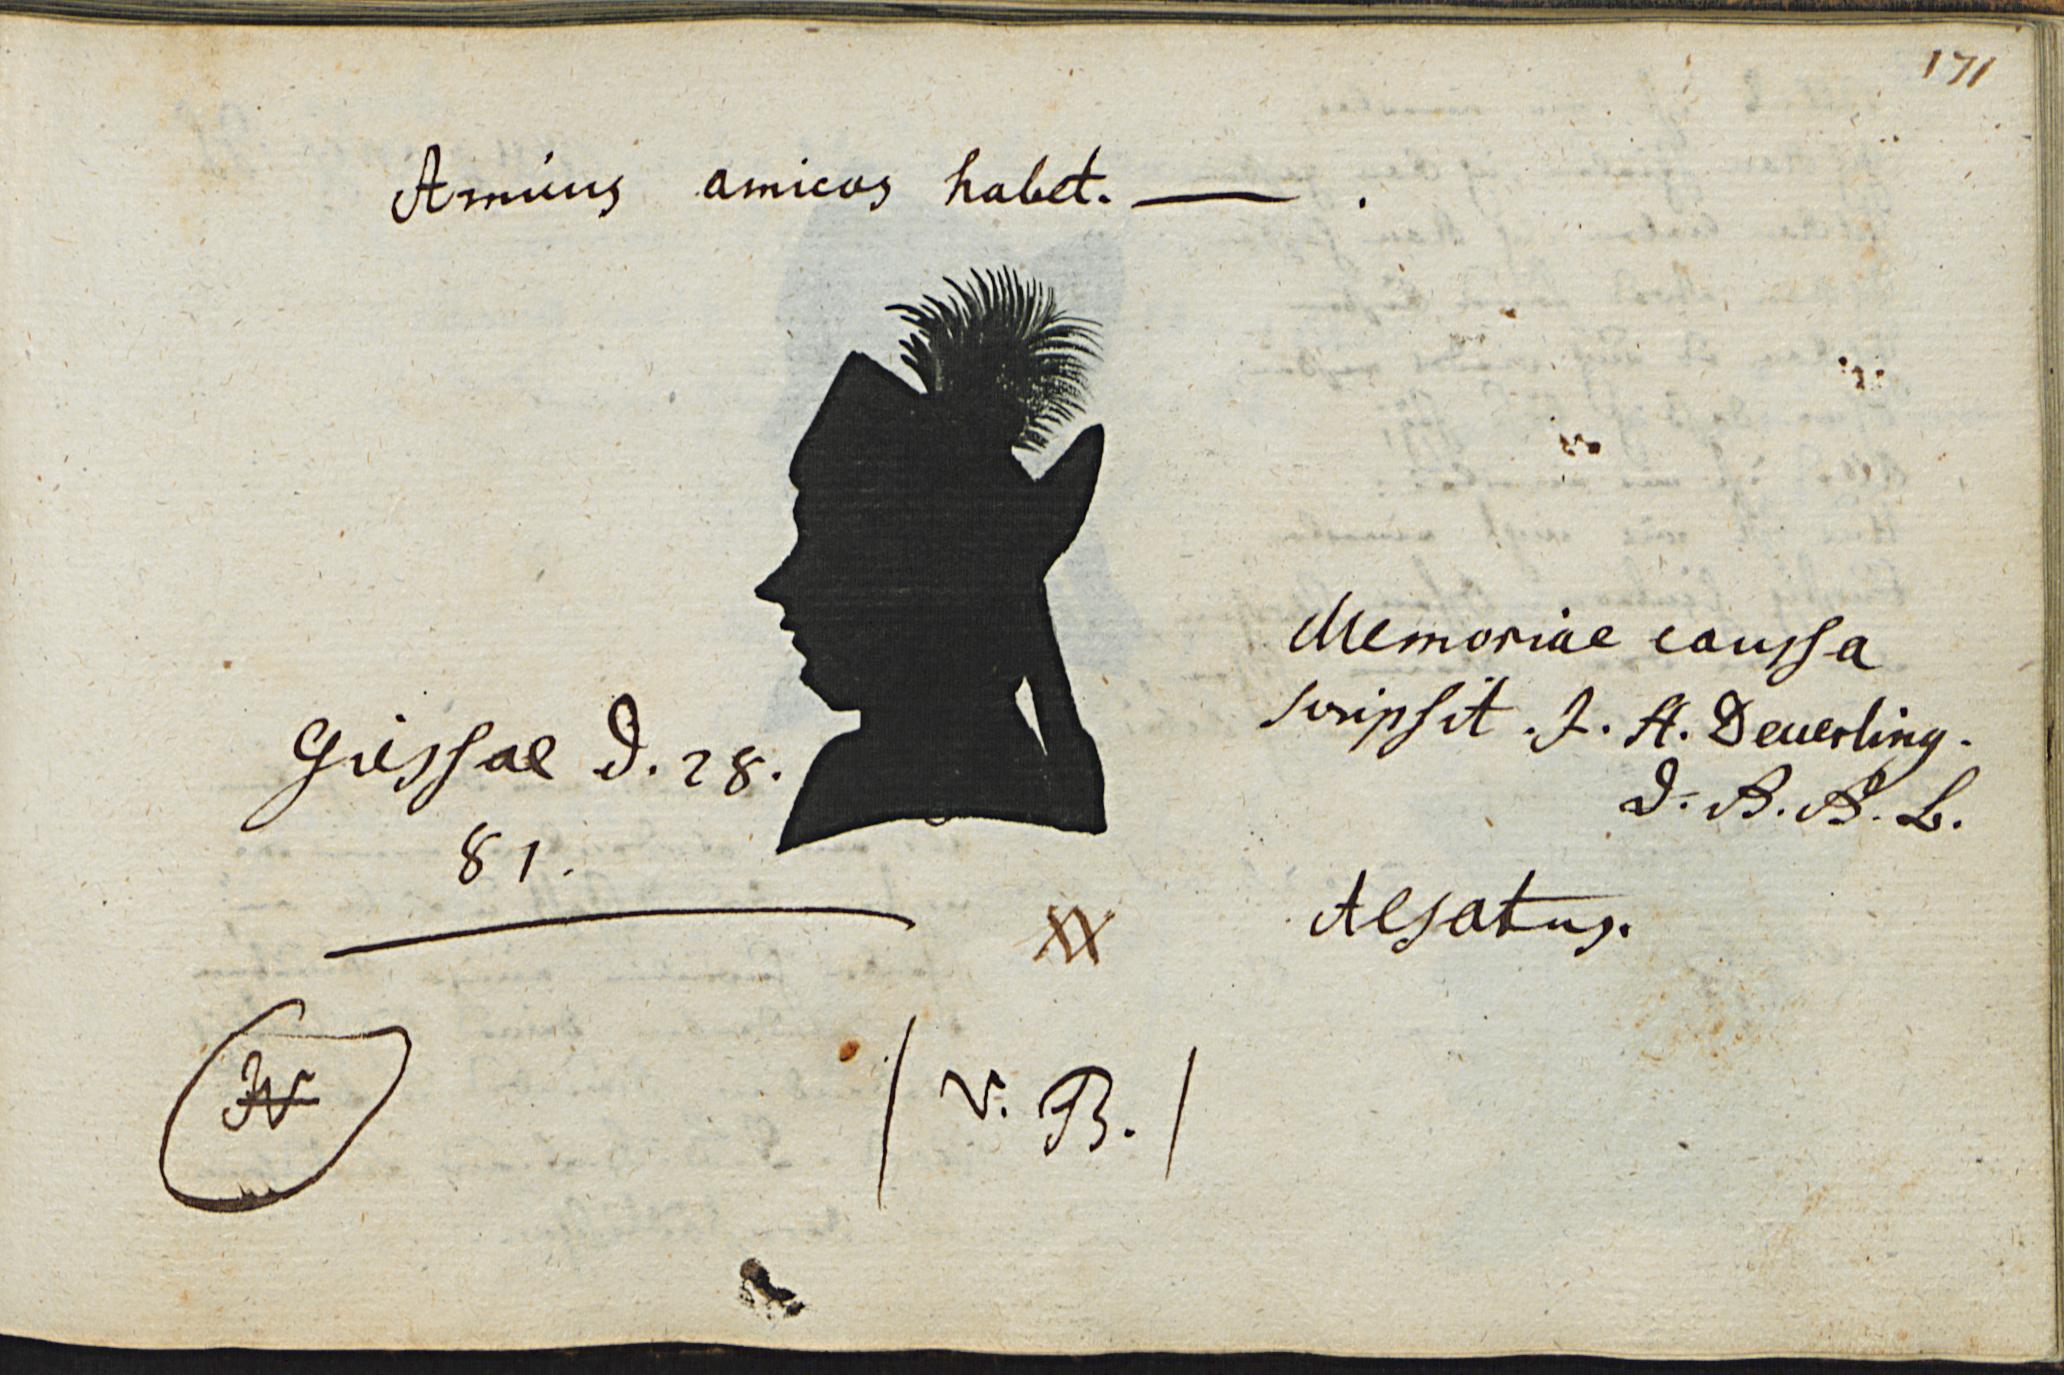 171
Amicus amicos habet. — .
Giessae d. 28.
81.
Memoriae caussa
scripsit . J. H. Deuerling.
D. B. A. L.
Alsatus.
XX
V. B.